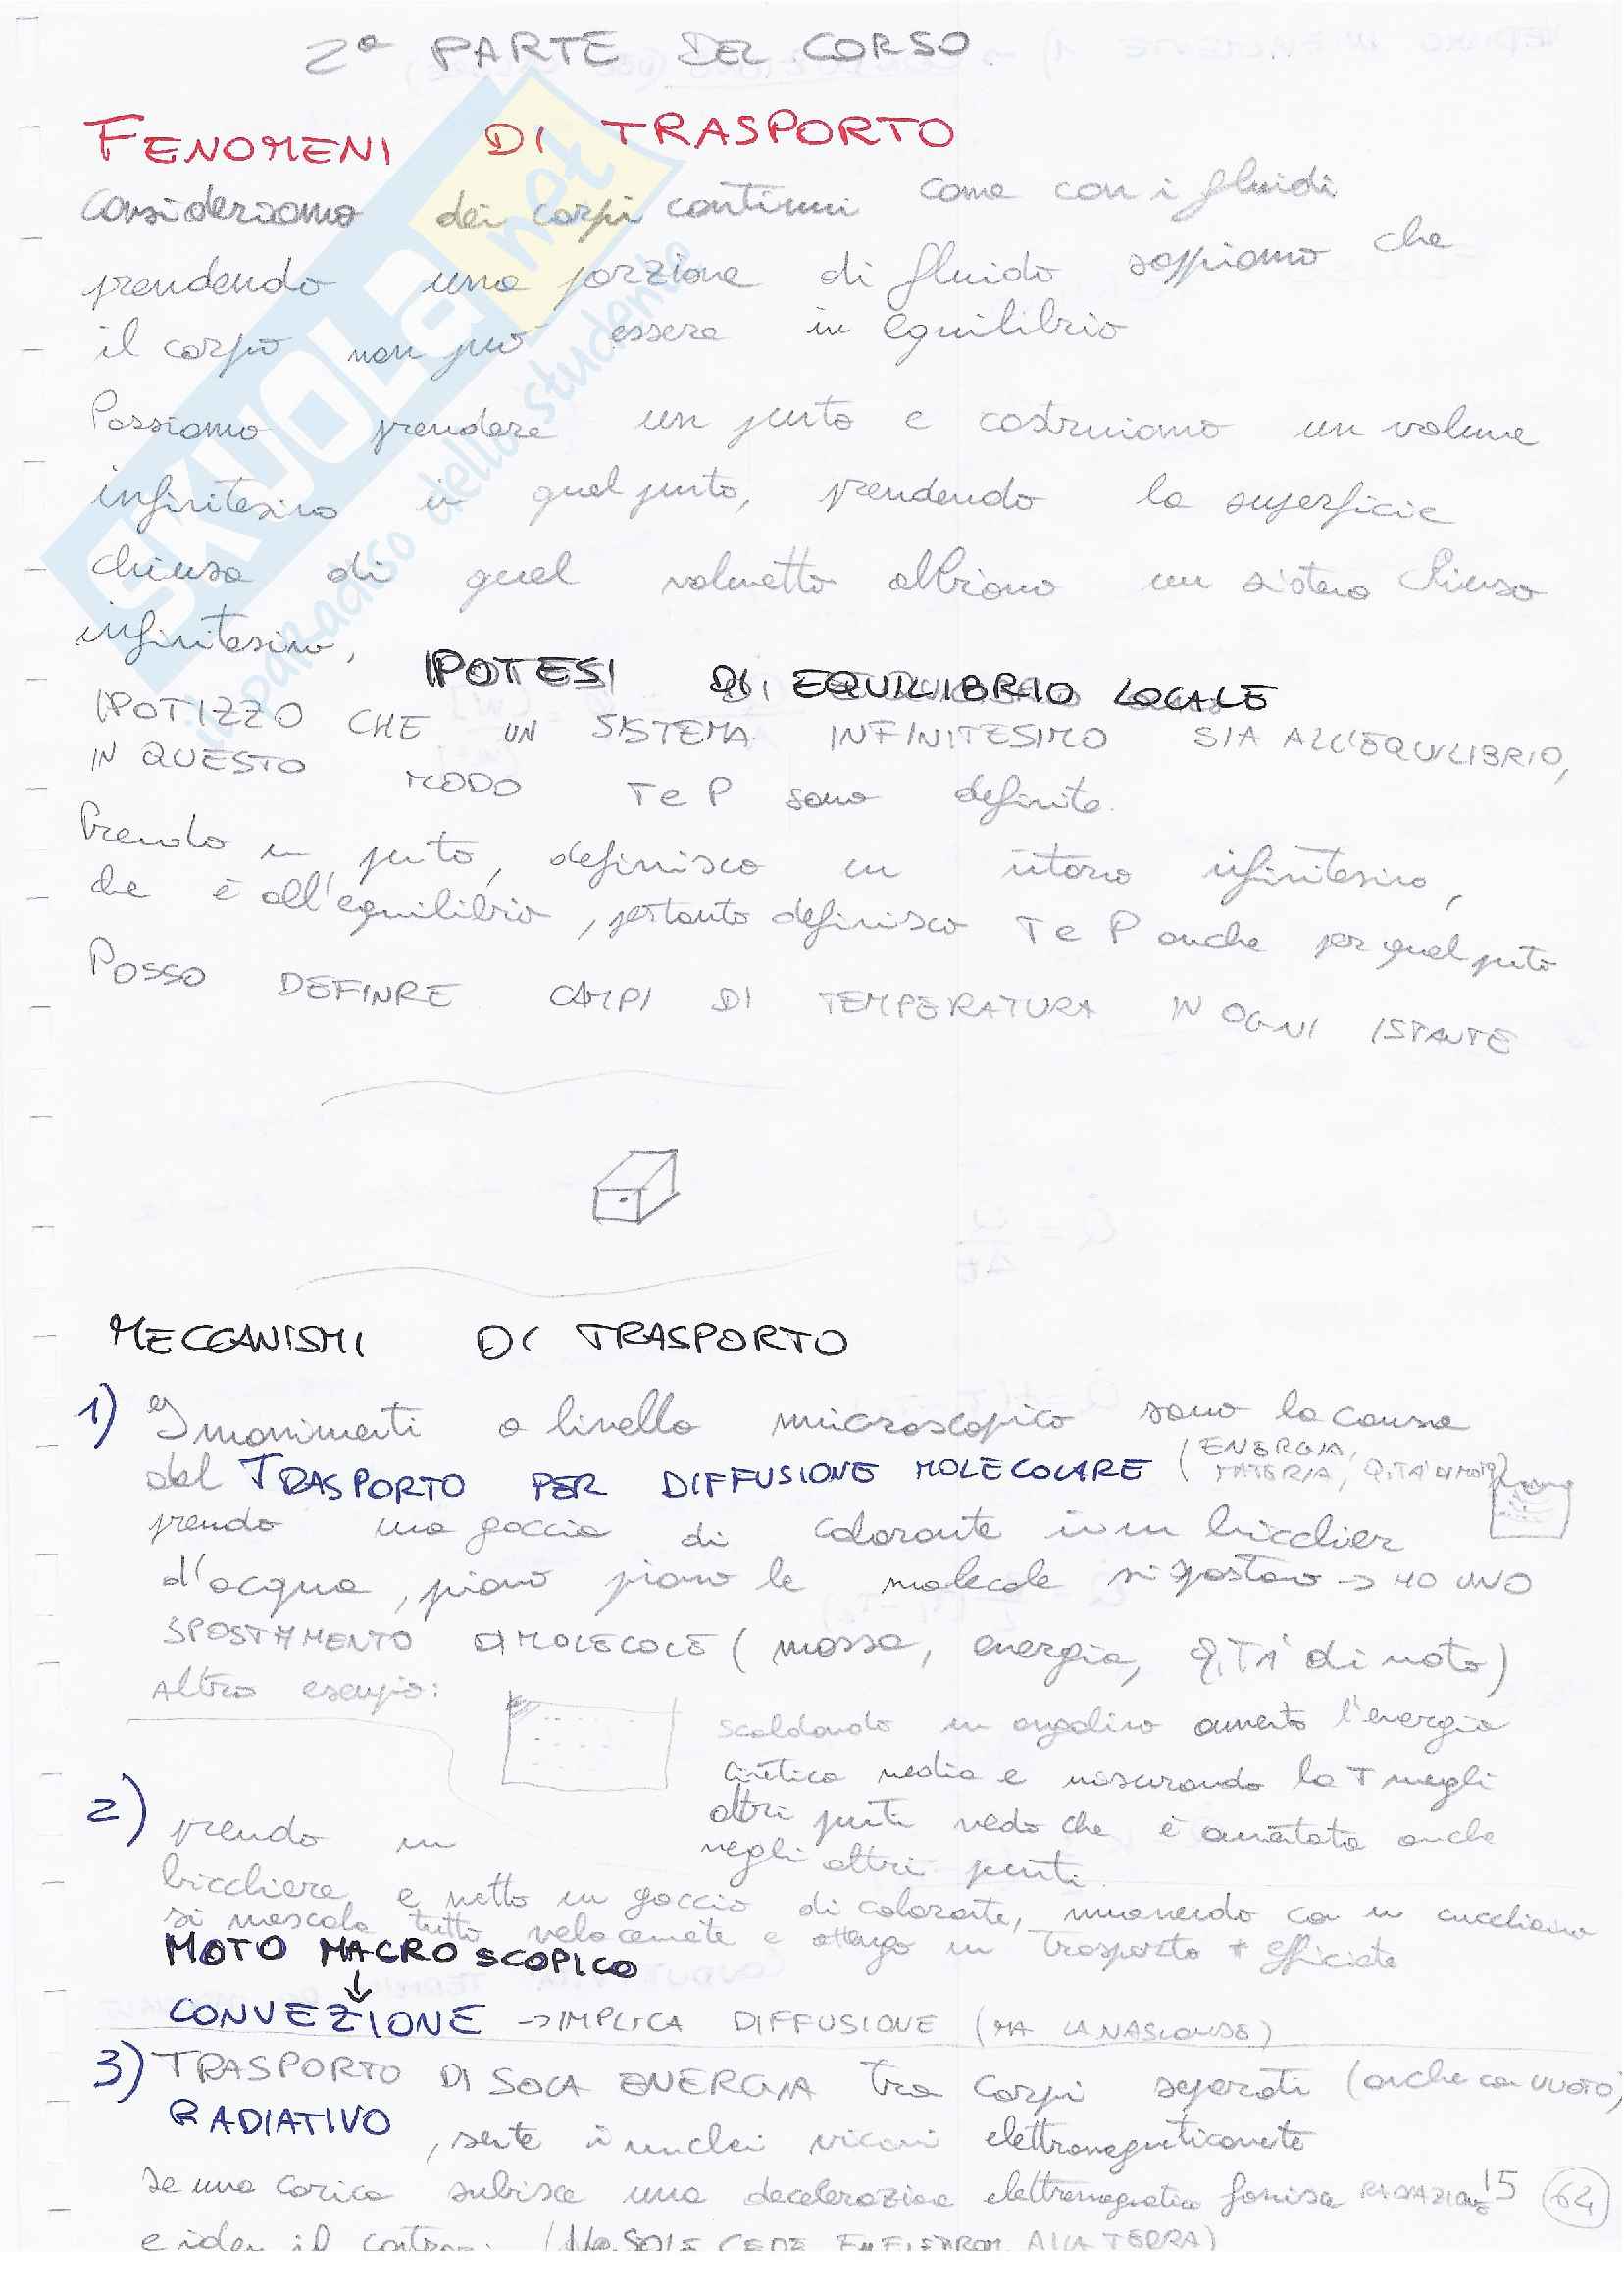 2ª PARTE DEL CORSO
FENOMENI DI TRASPORTO
Consideriamo dei corpi continui come con i fluidi
prendendo una porzione di fluido sappiamo che
il corpo non può essere in equilibrio
Possiamo prendere un punto e costruiamo un volume
infinitesimo in quel punto, prendendo la superficie
chiusa di quel volumetto abbiamo un sistema chiuso
infinitesimo, IPOTESI DI EQUILIBRIO LOCALE
IPOTIZZO CHE UN SISTEMA INFINITESIMO SIA ALL'EQUILIBRIO,
IN QUESTO MODO T e P sono definite.
Prendo un punto, definisco un intorno infinitesimo,
che è all'equilibrio, pertanto definisco T e P anche per quel punto
POSSO DEFINIRE CAMPI DI TEMPERATURA IN OGNI ISTANTE
MECCANISMI DI TRASPORTO
1) I movimenti a livello microscopico sono la causa
del TRASPORTO PER DIFFUSIONE MOLECOLARE (ENERGIA,
MATERIA, Q.TA' DI MOTO)
prendo una goccia di colorante in un bicchier
d'acqua, piano piano le molecole si spostano → HO UNO
SPOSTAMENTO DI MOLECOLE (massa, energia, Q.TA' di moto)
Altro esempio:
scaldando un angolino aumento l'energia
cinetica media e misurando la T negli
altri punti vedo che è aumentata anche
negli altri punti.
2) prendo un
bicchiere e metto un goccio di colorante, muovendo con un cucchiaino
si mescola tutto velocemente e ottengo un trasporto + efficiente
MOTO MACROSCOPICO
↓
CONVEZIONE → IMPLICA DIFFUSIONE (MA LA NASCONDE)
3) TRASPORTO DI SOLA ENERGIA tra corpi separati (anche con VUOTO)
RADIATIVO, sente i nuclei vicini elettromagneticamente
se una carica subisce una decelerazione elettromagnetica fornisce RADIAZIONE
15 64
e idem il contrario (Il SOLE CEDE EN ELETTROM ALLA TERRA)
SKUOLA.net
il paradiso dello studente